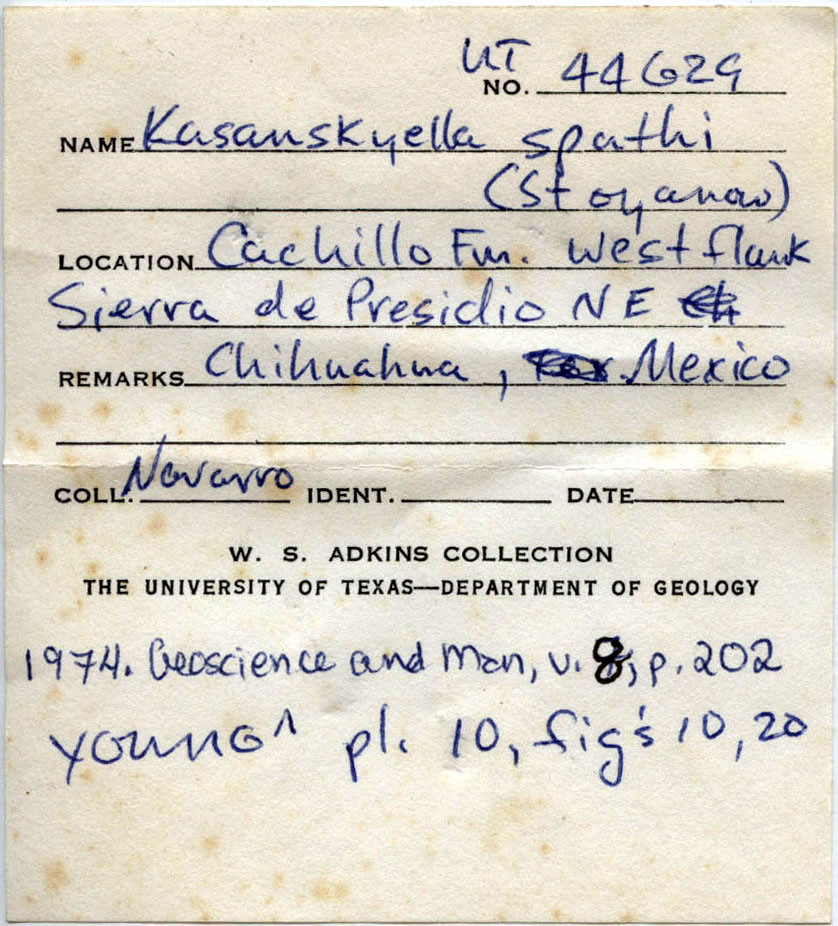 UT
NO. 44629
NAME Kasanskyella spathi
(Stoyanow)
LOCATION Cachillo Fm. west flank
Sierra de Presidio NE
REMARKS Chihuahua, Mexico
COLL. Navarro IDENT. DATE
W. S. ADKINS COLLECTION
THE UNIVERSITY OF TEXAS—DEPARTMENT OF GEOLOGY
1974. Geoscience and Man, v. 8, p. 202
YOUNG ^ pl. 10, fig's 10, 20